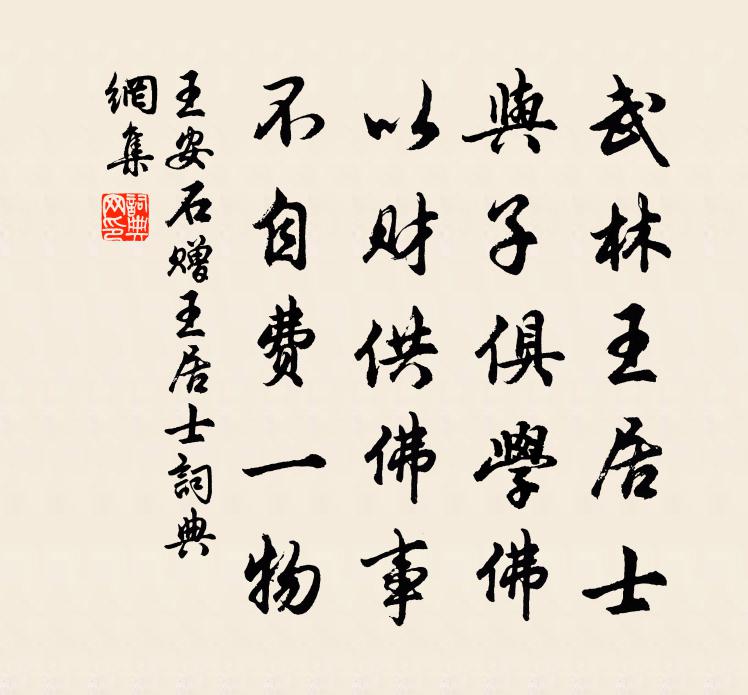 武林王居士
與子俱學佛
以財供佛事
不自費一物
王安石赠王居士詞典
網集
詞典
网印